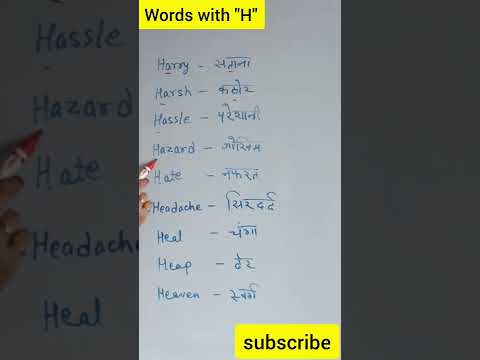 Words with "H"
Harry - सताना
Harsh - कठोर
Hassle - परेशानी
Hazard - जोखिम
Hate - नफरत
Headache - सिरदर्द
Heal - चंगा
Heap - ढेर
Heaven - स्वर्ग
subscribe
Hassle
Hazard
Hate
Headache
Heal